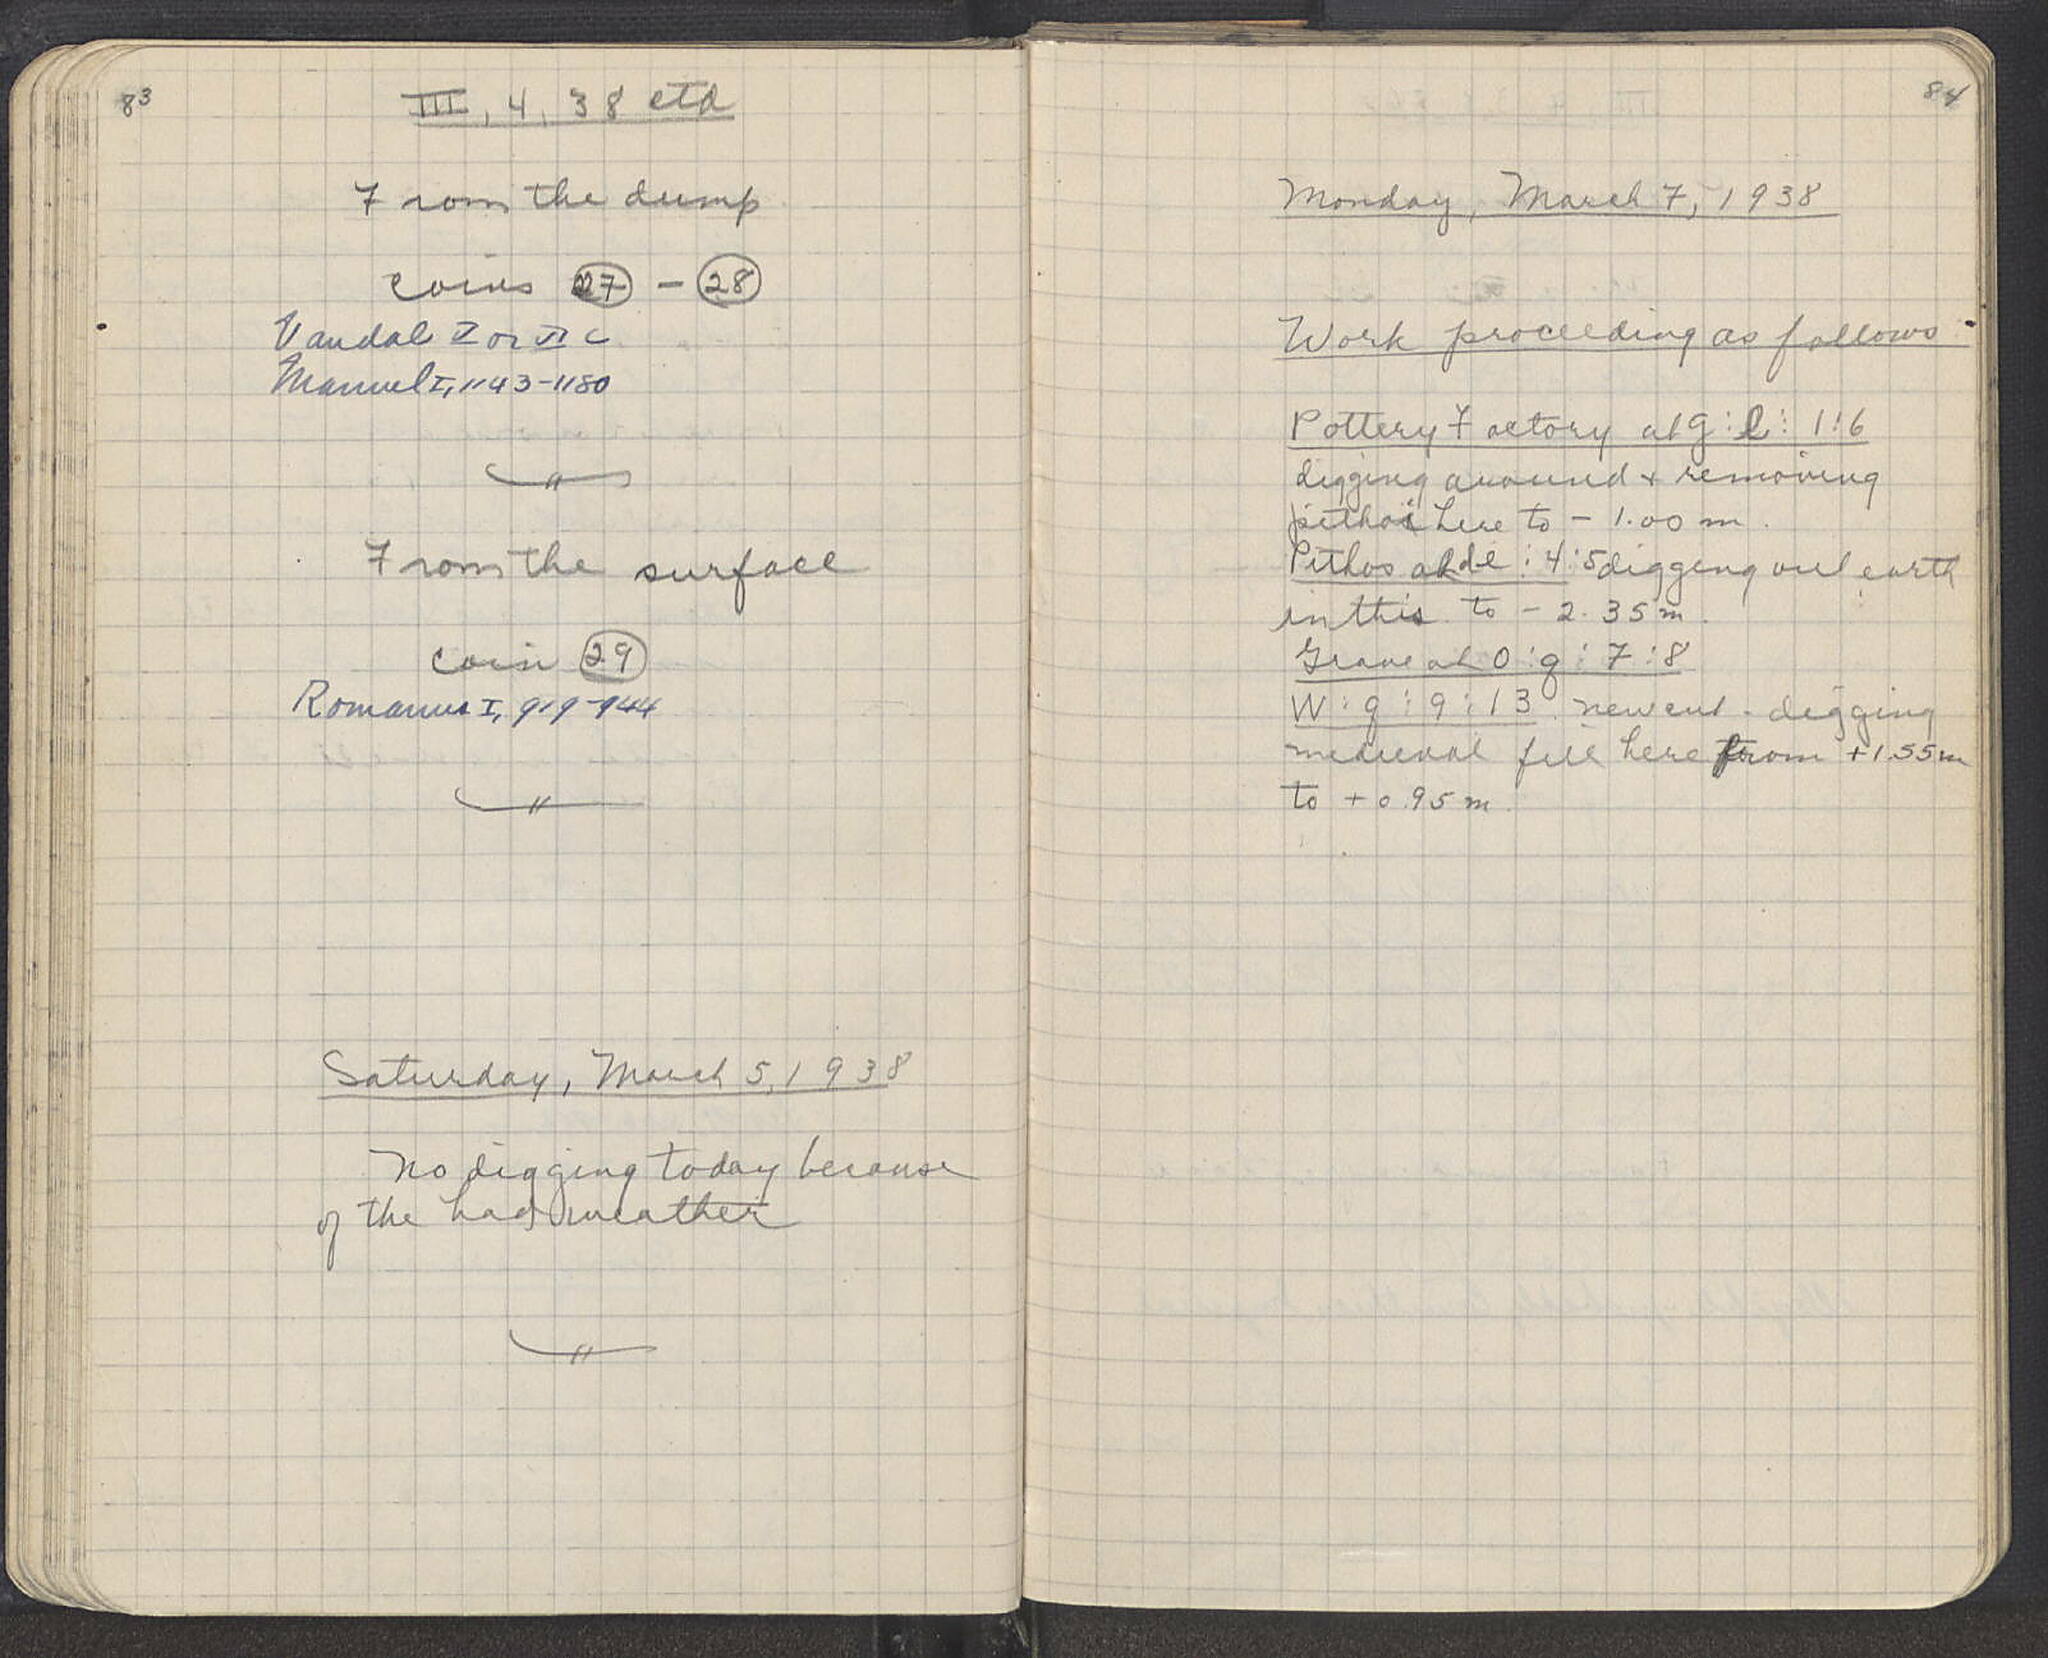 83
III, 4, 38 ctd
From the dump
coins 27 - 28
Vandal V or VI c
Manuel I, 1143-1180
"
From the surface
coin 29
Romanus I, 919-944
"
Saturday, March 5, 1938
No digging today because
of the bad weather
"
84
Monday, March 7, 1938
Work proceeding as follows
Pottery Factory at G:l: 1:6
digging around + removing
pithoi here to - 1.00 m.
Pithos at de : 4:5 digging out earth
in this to - 2.35 m.
Grave at O:q: 7:8
W:q:9:13 new cut - digging
medieval fill here from +1.55 m
to + 0.95 m.